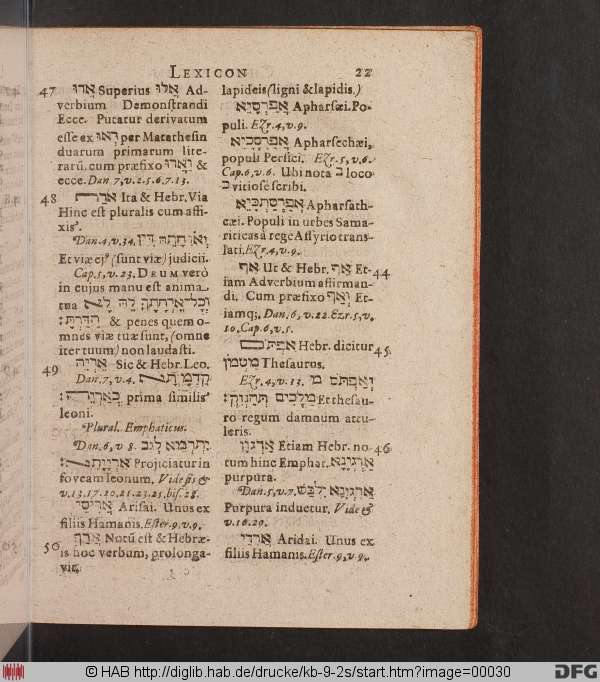 LEXICON 22
47 ארו Superius אלו Ad-
verbium Demonſtrandi
Ecce. Putatur derivatum
eſſe ex ראו per Metatheſin
duarum primarum lite-
rarũ, cum præfixo וארו &
ecce. Dan 7, v. 2. 5. 6. 7. 13.
48 Ita & Hebr. Via
Hinc eſt pluralis cum affi-
xis.
Dan. 4, v. 34.
Et viæ ej⁹ (ſunt viæ) judicii.
Cap. 5, v. 23. DEUM verò
in cujus manu eſt anima
tua
& penes quem o-
mnes viæ tuæ ſunt, (omne
iter tuum) non laudaſti.
49 Sic & Hebr. Leo.
Dan. 7, v. 4.
prima ſimilis
leoni.
Plural. Emphaticus.
Dan. 6, v 8.
Projiciatur in
foveam leonum. Vide ſis &
v. 13. 17. 20. 21. 23. 25. bis. 28.
Ariſai. Unus ex
filiis Hamanis. Eſter. 9. v. 9.
50 Notũ eſt & Hebræ-
is hoc verbum, prolonga-
vit.
lapideis (ligni & lapidis.)
אֲפַרְסָיֵא Apharſæi. Po-
puli. Ezr. 4, v. 9.
אֲפַרְסְכָיֵא Apharſechæi,
populi Perſici. Ezr. 5, v. 6.
Cap. 6, v. 6. Ubi nota ב loco
כ vitioſè ſcribi.
אֲפַרְסַתְכָיֵא Apharſath-
cæi. Populi in urbes Sama-
riticas à rege Aſſyrio trans-
lati. Ezr. 4, v. 9.
אַף Ut & Hebr. אַף Et- 44
iam Adverbium affirman-
di. Cum præfixo וְאַף Et-
iamq;. Dan. 6, v. 22. Ezr. 5, v.
10. Cap. 6, v. 5.
אפתם Hebr. dicitur 45
מטמון Theſaurus.
Ezr. 4, v. 13.
Et theſau-
ro regum damnum attu-
leris.
ארגון Etiam Hebr. no- 46
tum hinc Emphat. ארגונא
purpura.
Dan. 5, v. 7. ארגונא ילבש
Purpura induetur. Vide &
v. 16. 29.
ארדי Aridai. Unus ex
filiis Hamanis. Eſter. 9, v. 9.
© HAB http://diglib.hab.de/drucke/kb-9-2s/start.htm?image=00030
DFG